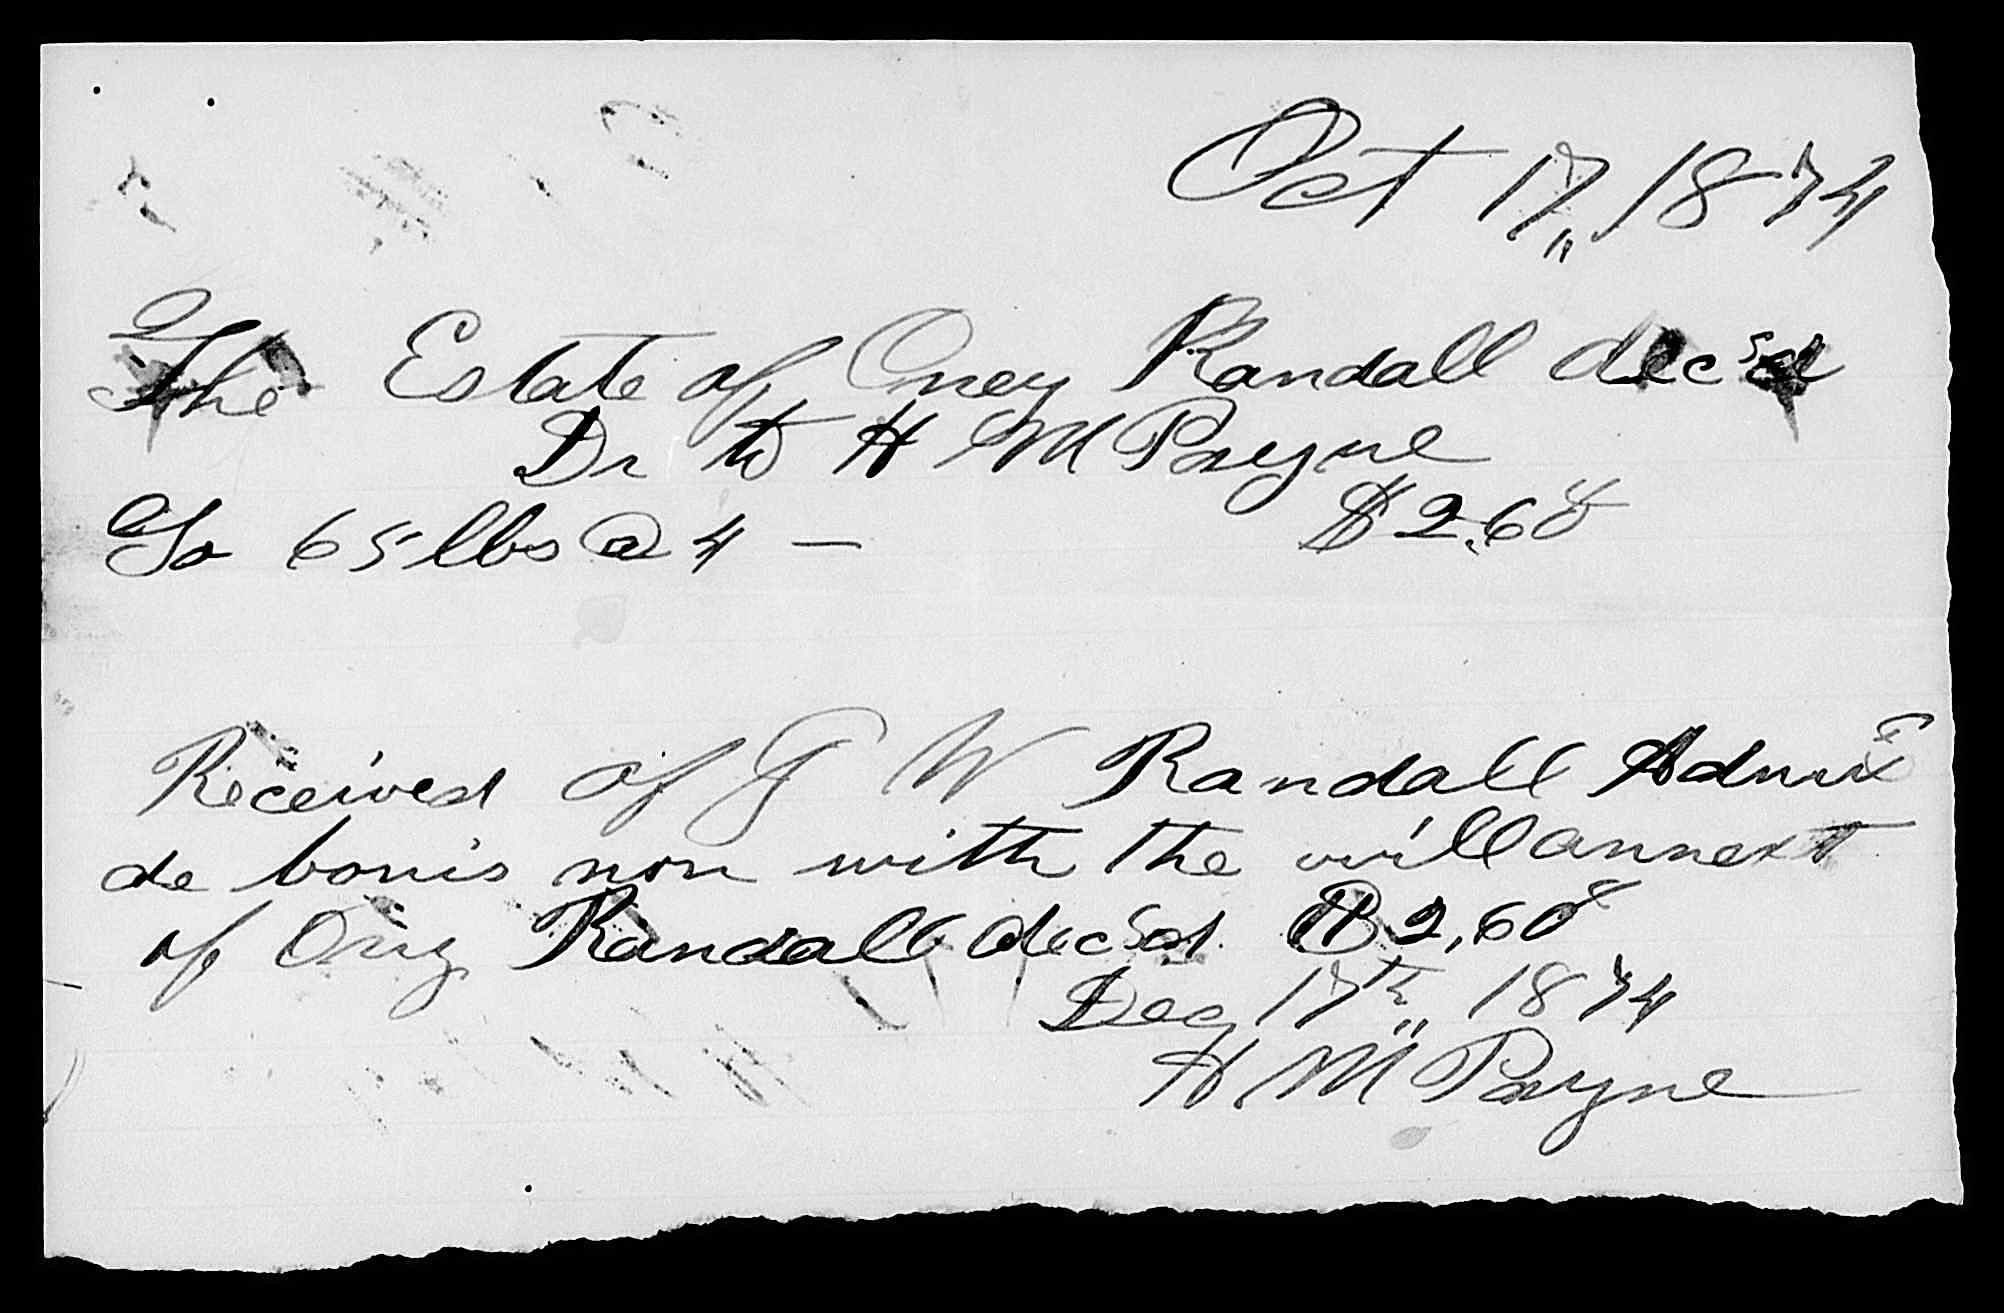 Oct 17, 1874
The Estate of Oney Randall decsd
Dr to H M Payne
To 65 lbs @ 4 — $2.60
Received of G W Randall Admr
de bonis non with the will annext
of Ony Randall decsd $2,60
Dec 17th 1874
H. M Payne